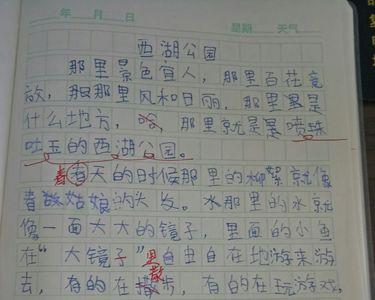 年 月 日 星期 天气
西湖公园
那里景色宜人，那里百花竞
放，那里风和日丽，那里是
什么地方，那里就是喷珠
吐玉的西湖公园。
春天的时候那里的柳就像
春姑娘的头发。那里的水就
像一面大大的镜子，里面的小鱼
在“大镜子”里自由自在地游来游
去，有的在散步，有的在玩游戏。